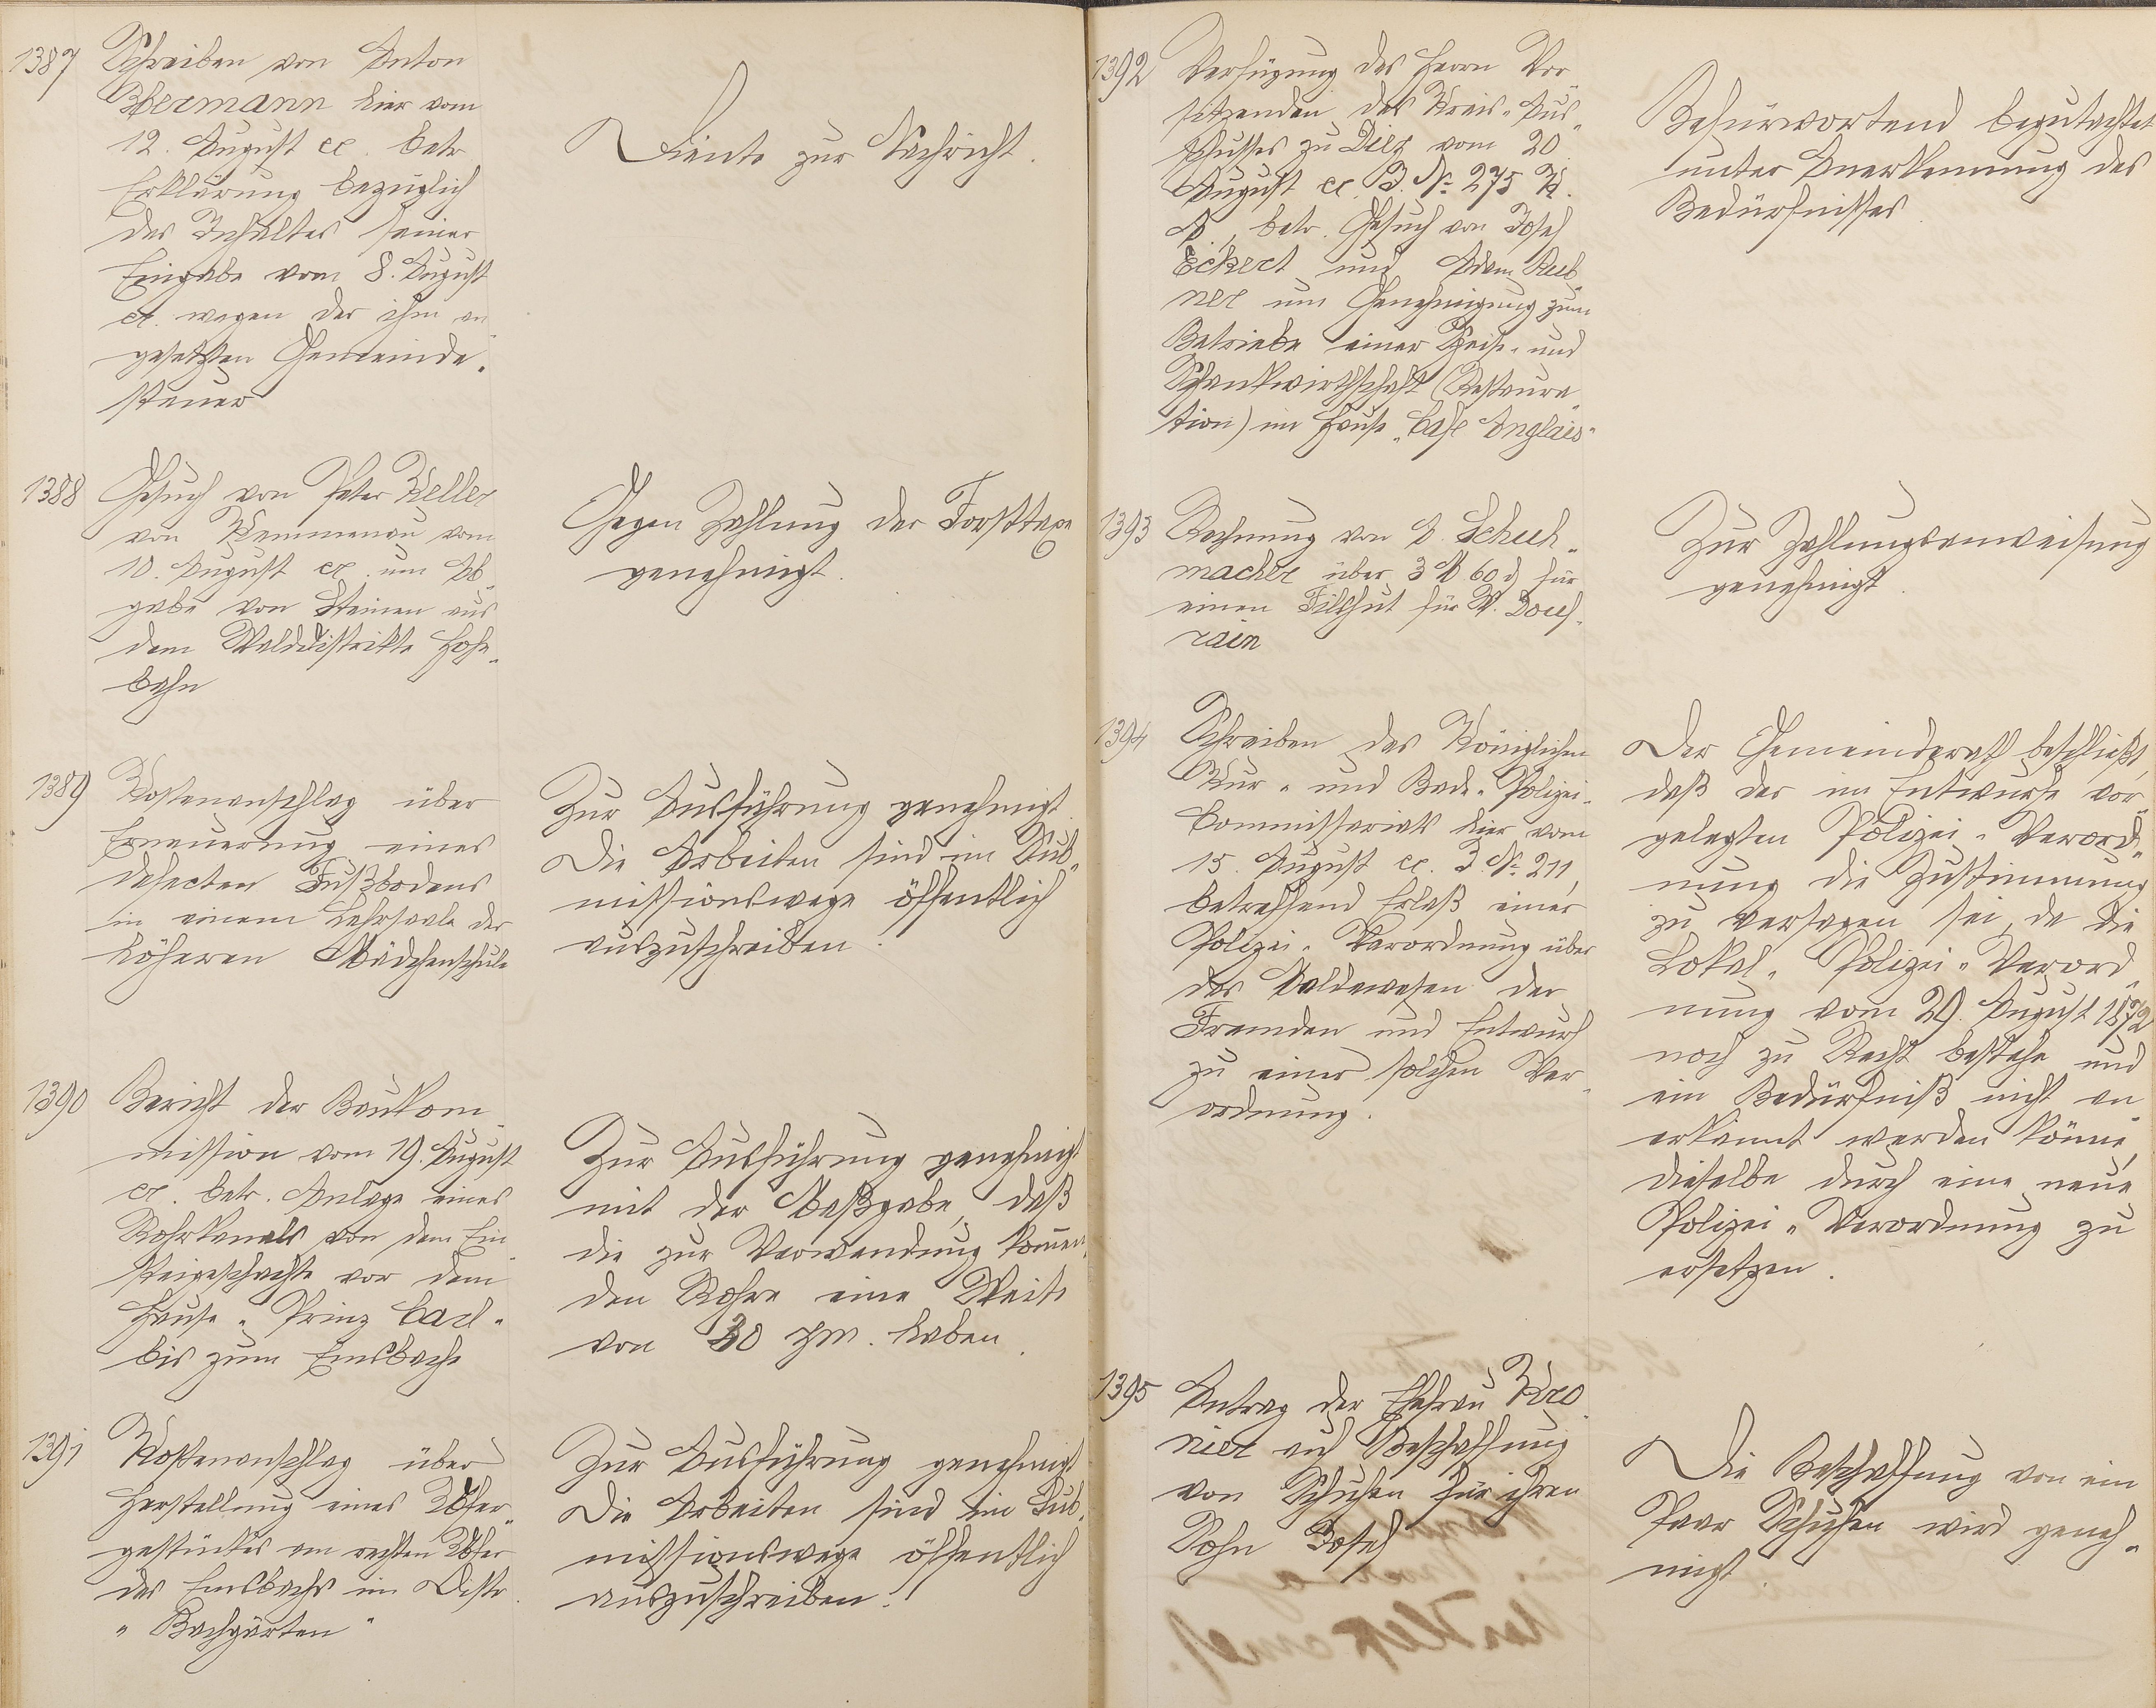 1387
Schreiben von Anton
Ubermann hier vom
12. August cr. betr.
Erklärung bezüglich
des Inhaltes seiner
Eingabe vom 8. August
cr. wegen der ihm an„
gesetzten Gemeinde„
steuer
Diente zur Nachricht.
1388
Gesuch von Peter Keller
von Kemmenau vom
10. August cr. um Ab„
gabe von Steinen aus
dem Walddistrikte Hohe„
bahn
Gegen Zahlung der Forsttaxe
genehmigt.
1389
Kostenanschlag über
Erneuerung eines
defecten Fußbodens
in einem Lehrsaale der
höheren Mädchenschule
Zur Ausführung genehmigt.
Die Arbeiten sind im Sub„
missionswege öffentlich
auszuschreiben.
1390
Bericht der Baukom„
mission vom 19. August
cr. betr. Anlage eines
Rohrkanals von dem Ein„
steigeschachte vor dem
Hause „Prinz Carl"
bis zum Emsbache
Zur Ausführung genehmigt
mit der Maßgabe, daß
die zur Verwendung komen„
den Rohre eine Weite
von 30 cm. haben.
1391
Kostenanschlag über
Herstellung eines Ufer„
gestückes am rechten Ufer
des Emsbachs im Distr.
„Bachgärten"
Zur Ausführung genehmigt
Die Arbeiten sind im Sub„
missionswege öffentlich
auszuschreiben.
1392
Verfügung des Herrn Vor„
sitzenden des Kreis-Aus„
schusses zu Diez vom 20.
August cr. B. No 275 K.
A., betr. Gesuch von Josef
Eckert und Adam Reib„
ner um Genehmigung zum
Betriebe einer Speise- und
Schankwirthschaft (Restaura„
tion) im Hause „Café Anglais"
Befürwortend begutachtet
unter Anerkennung des
Bedürfnisses.
1393
Rechnung von A. Schuh„
macher über 3 M 60 d für
einen Filzhut für W. Dorf„
rain
Zur Zahlungsanweisung
genehmigt.
1394
Schreiben des Königlichen
Kur- und Bade-Polizei-
Commissariats hier vom
15. August cr. J. No 211,
betreffend Erlaß einer
Polizei-Verordnung über
das Meldewesen der
Fremden und Entwurf
zu einer solchen Ver„
ordnung.
Der Gemeinderath beschließt,
daß der im Entwurfe vor„
gelegten Polizei-Verord„
nung die Zustimmung
zu versagen sei, da die
Lokal-Polizei-Verord„
nung vom 29. August 1872
noch zu Recht bestehe und
ein Bedürfniß nicht an„
erkannt werden könne,
dieselbe durch eine neue
Polizei-Verordnung zu
ersetzen.
1395
Antrag der Ehefrau Kro„
nier auf Beschaffung
von Schuhen für ihren
Sohn Josef
Die Beschaffung von ein
Paar Schuhen wird geneh„
migt.